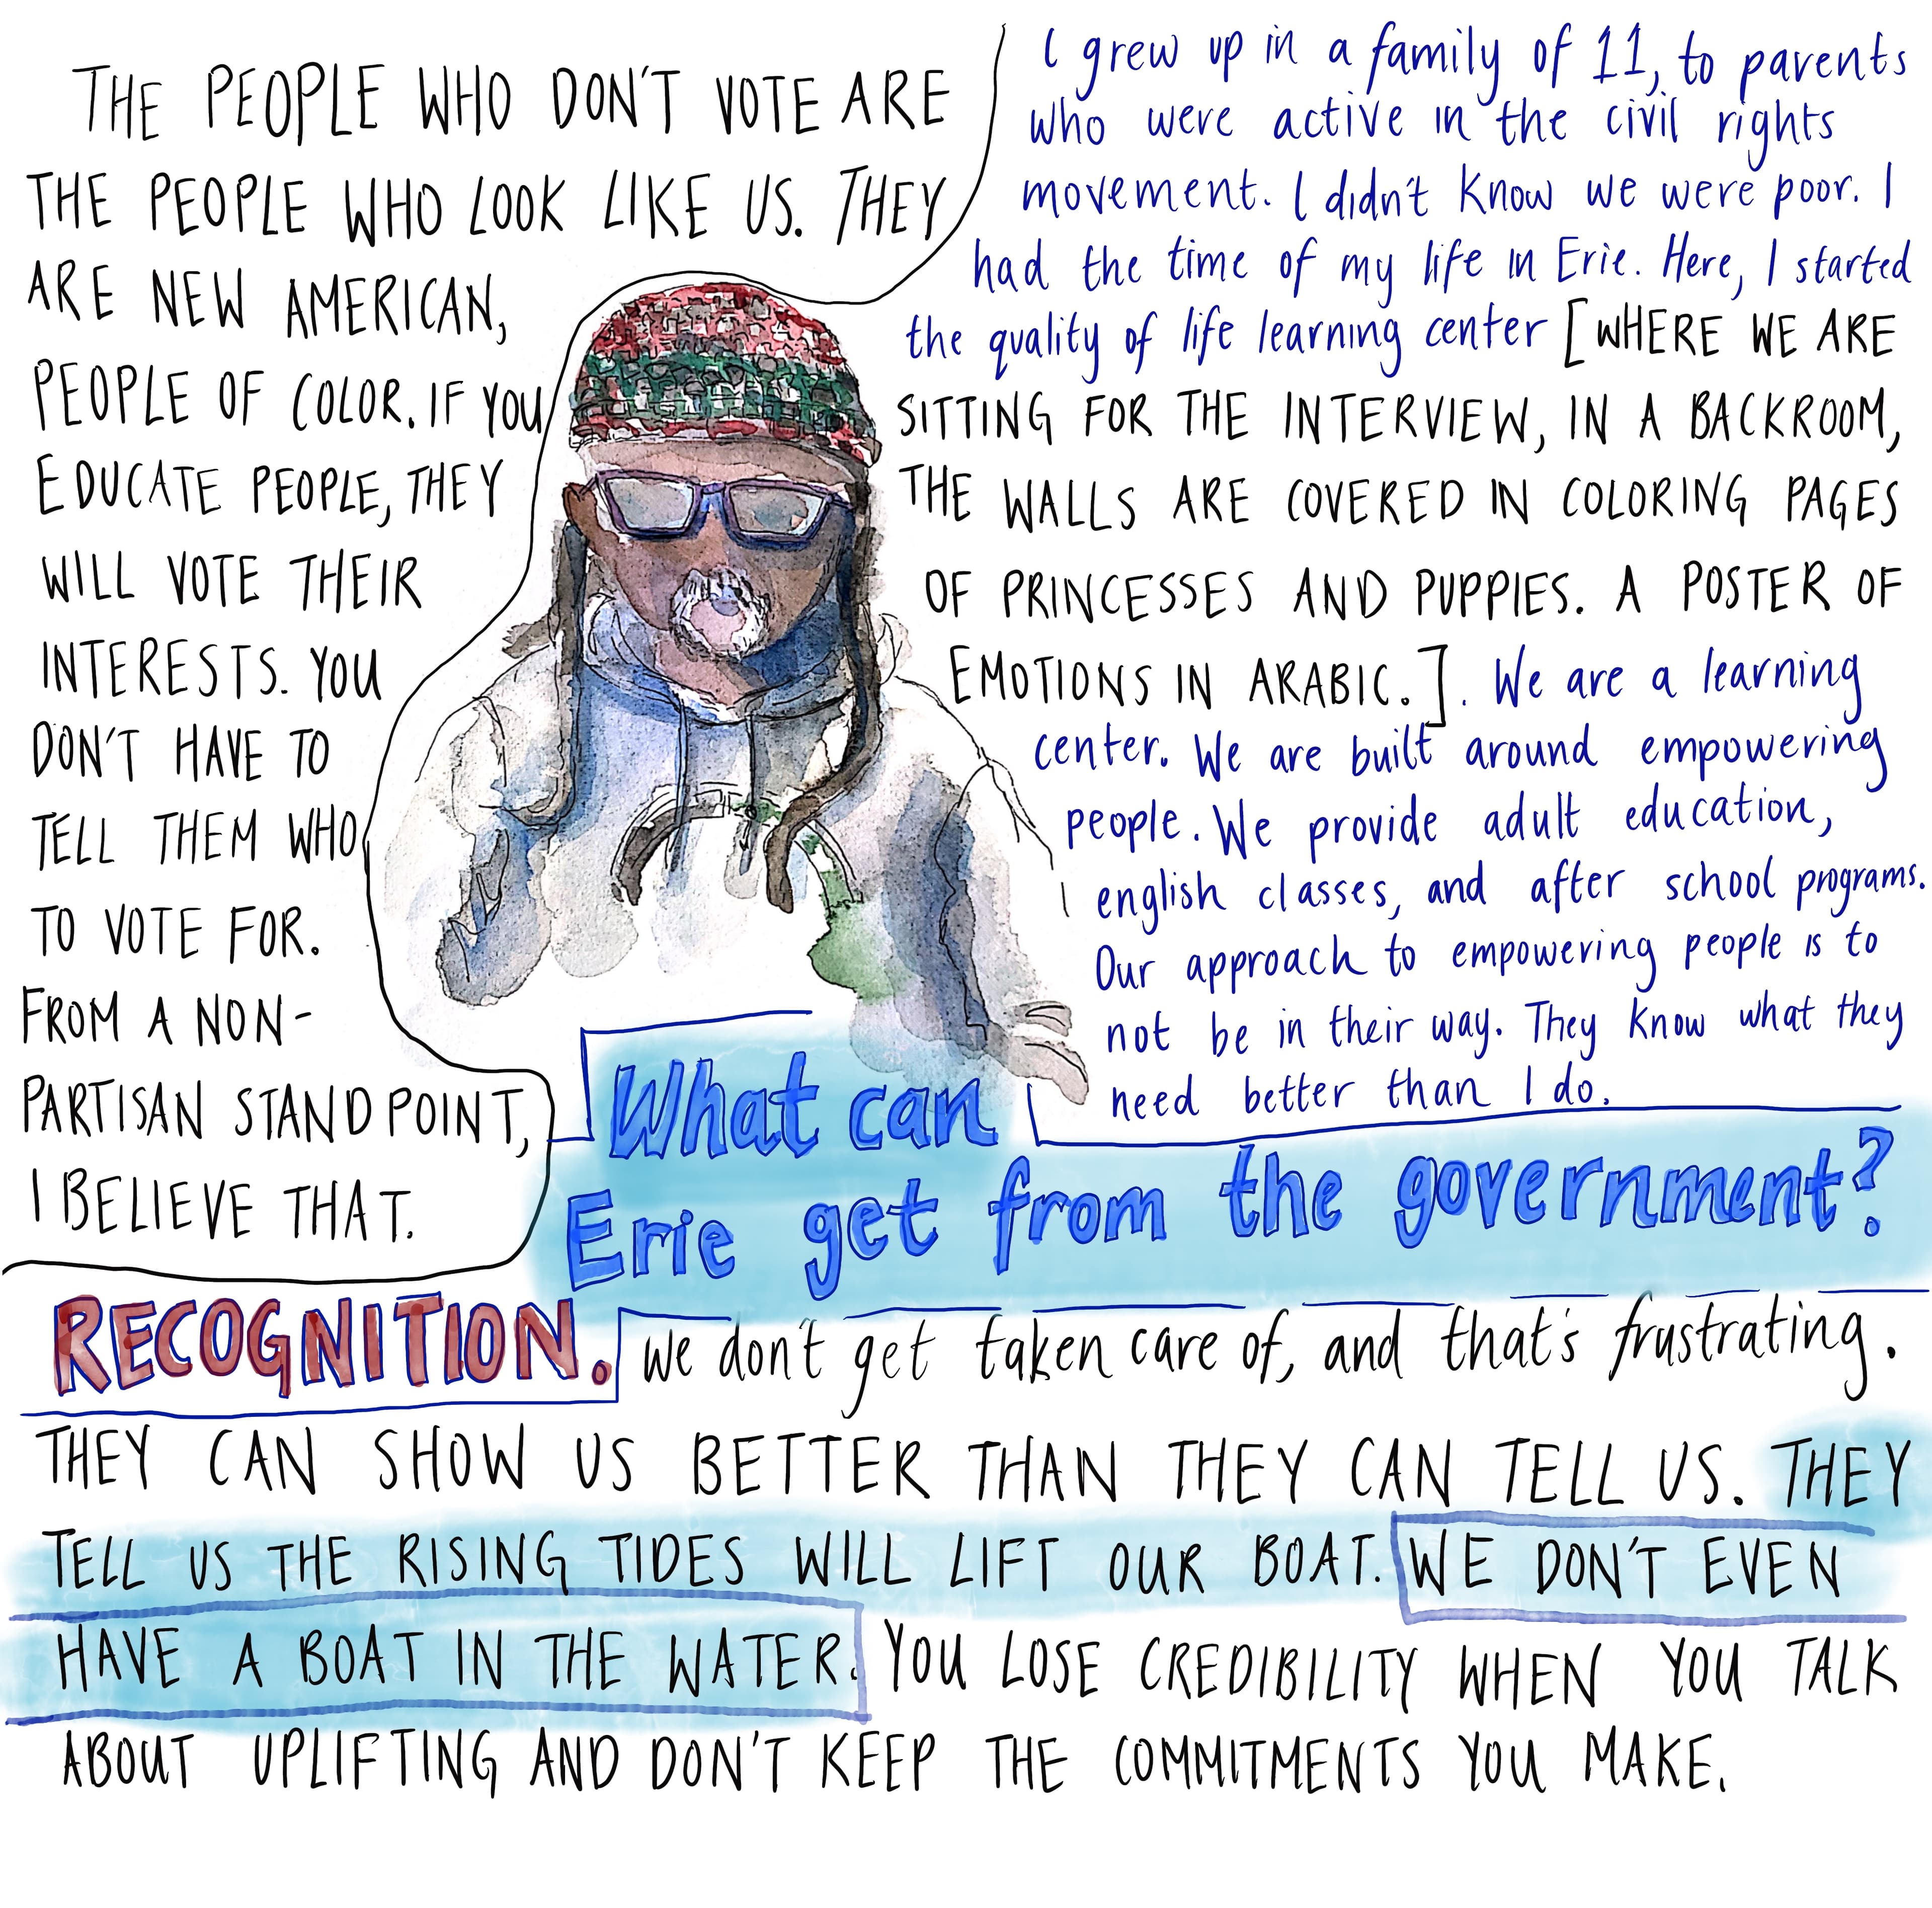 THE PEOPLE WHO DON'T VOTE ARE
THE PEOPLE WHO LOOK LIKE US. THEY
ARE NEW AMERICAN,
PEOPLE OF COLOR. IF YOU
EDUCATE PEOPLE, THEY
WILL VOTE THEIR
INTERESTS. YOU
DON'T HAVE TO
TELL THEM WHO
TO VOTE FOR.
FROM A NON-
PARTISAN STANDPOINT,
I BELIEVE THAT.
I grew up in a family of 11, to parents
who were active in the civil rights
movement. I didn't know we were poor. I
had the time of my life in Erie. Here, I started
the quality of life learning center [WHERE WE ARE
SITTING FOR THE INTERVIEW, IN A BACKROOM,
THE WALLS ARE COVERED IN COLORING PAGES
OF PRINCESSES AND PUPPIES. A POSTER OF
EMOTIONS IN ARABIC.]. We are a learning
center. We are built around empowering
people. We provide adult education,
english classes, and after school programs.
Our approach to empowering people is to
not be in their way. They know what they
need better than I do.
What can
Erie get from the government?
RECOGNITION. we don't get taken care of, and that's frustrating.
THEY CAN SHOW US BETTER THAN THEY CAN TELL US. THEY
TELL US THE RISING TIDES WILL LIFT OUR BOAT. WE DON'T EVEN
HAVE A BOAT IN THE WATER. YOU LOSE CREDIBILITY WHEN YOU TALK
ABOUT UPLIFTING AND DON'T KEEP THE COMMITMENTS YOU MAKE.